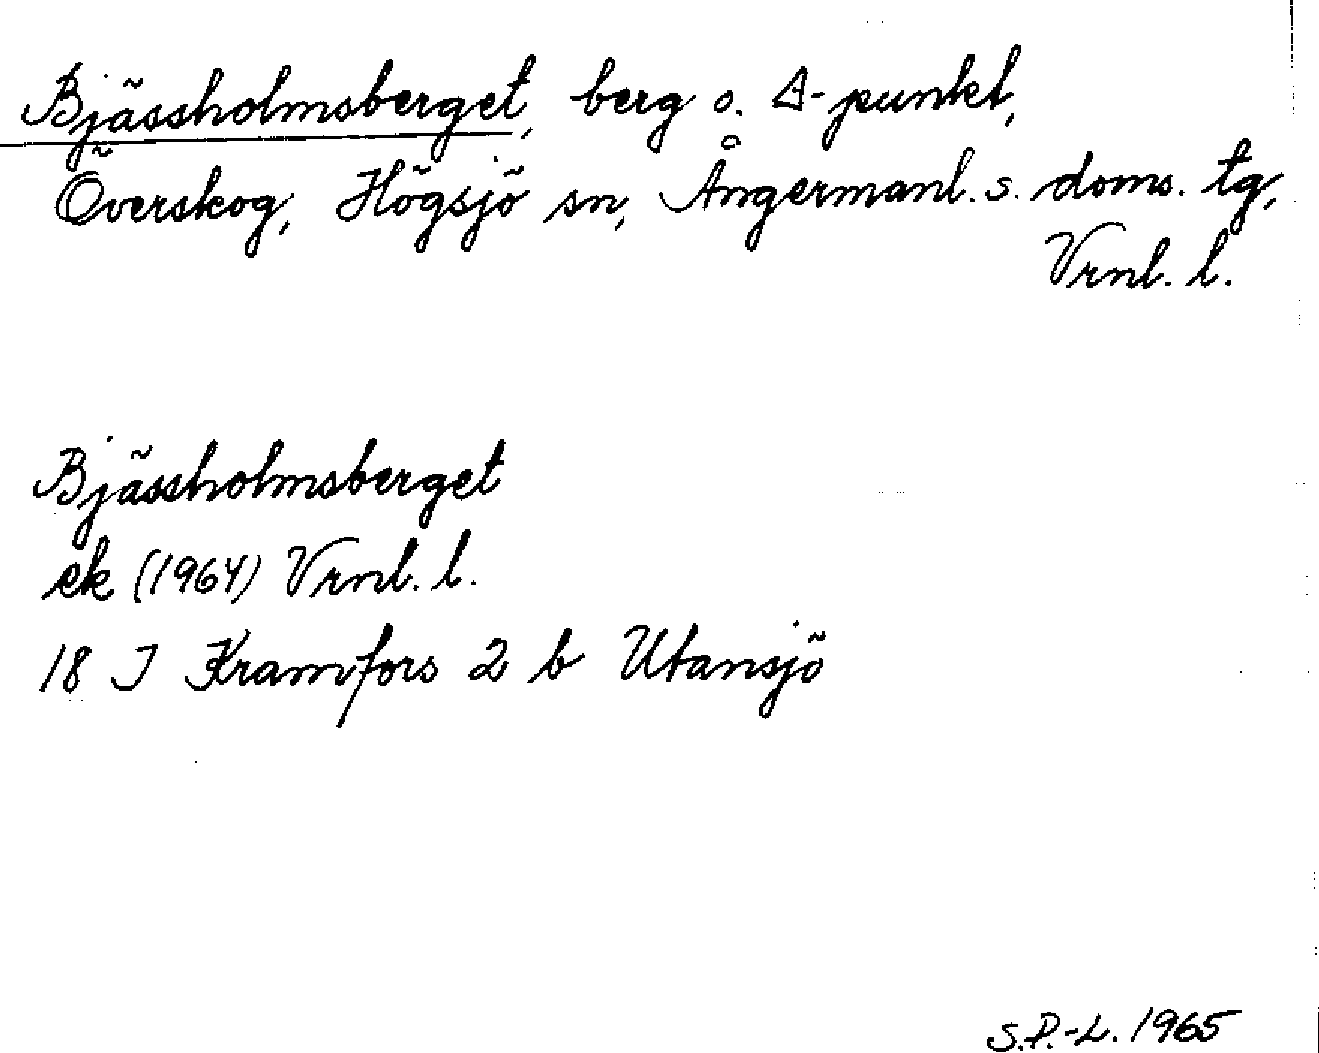 Bjässholmsberget, berg o. Δ-punkt,
Överskog, Högsjö sn, Ångermanl. s. doms. tg,
Vrnl. l.
Bjässholmsberget
ek (1964) Vrnl. l.
18 I Kramfors 2 b Utansjö
S.P.-L. 1965